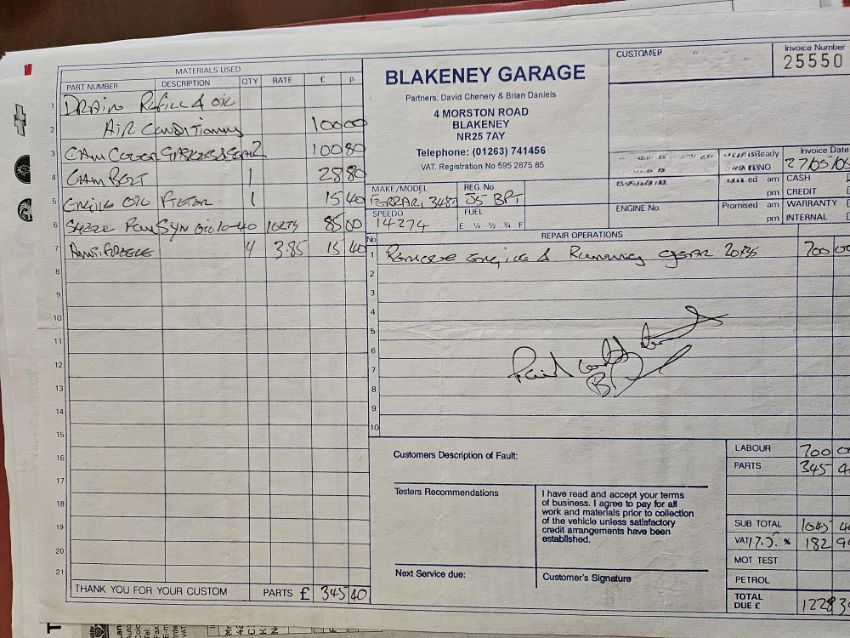 MATERIALS USED
PART NUMBER DESCRIPTION QTY RATE £ p
1 DRAIN Refill & oil
2 AIR Conditioning 100 00
3 CAM COVER GASKETS & SEALS 2 100 80
4 CAM BELT 1 28 80
5 ENGINE OIL FILTER 1 15 40
6 SYN 10-40 10LTS 85 00
7 ANTIFREEZE 4 3.85 15 40
8
9
10
11
12
13
14
15
16
17
18
19
20
21
THANK YOU FOR YOUR CUSTOM PARTS £ 345 40
BLAKENEY GARAGE
Partners: David Chenery & Brian Daniels
4 MORSTON ROAD
BLAKENEY
NR25 7AY
Telephone: (01263) 741456
VAT. Registration No 595 2875 85
CUSTOMER
Invoice Number
25550
Invoice Date
27/05/05
MAKE/MODEL
FERRARI 348
REG. No
J5 BPT
SPEEDO
14274
FUEL
E ¼ ½ ¾ F
ENGINE No.
am
pm
Promised am
pm
CASH
CREDIT
WARRANTY
INTERNAL
No REPAIR OPERATIONS
1 Remove engine & Running gear 700 00
2
3
4
5
6
7
8
9
10
Paid with
Customers Description of Fault:
Testers Recommendations
Next Service due:
I have read and accept your terms
of business. I agree to pay for all
work and materials prior to collection
of the vehicle unless satisfactory
credit arrangements have been
established.
Customer's Signature
LABOUR 700 00
PARTS 345 4
SUB TOTAL 1045 4
VAT 17.5 % 182 9
MOT TEST
PETROL
TOTAL
DUE £ 1228 3